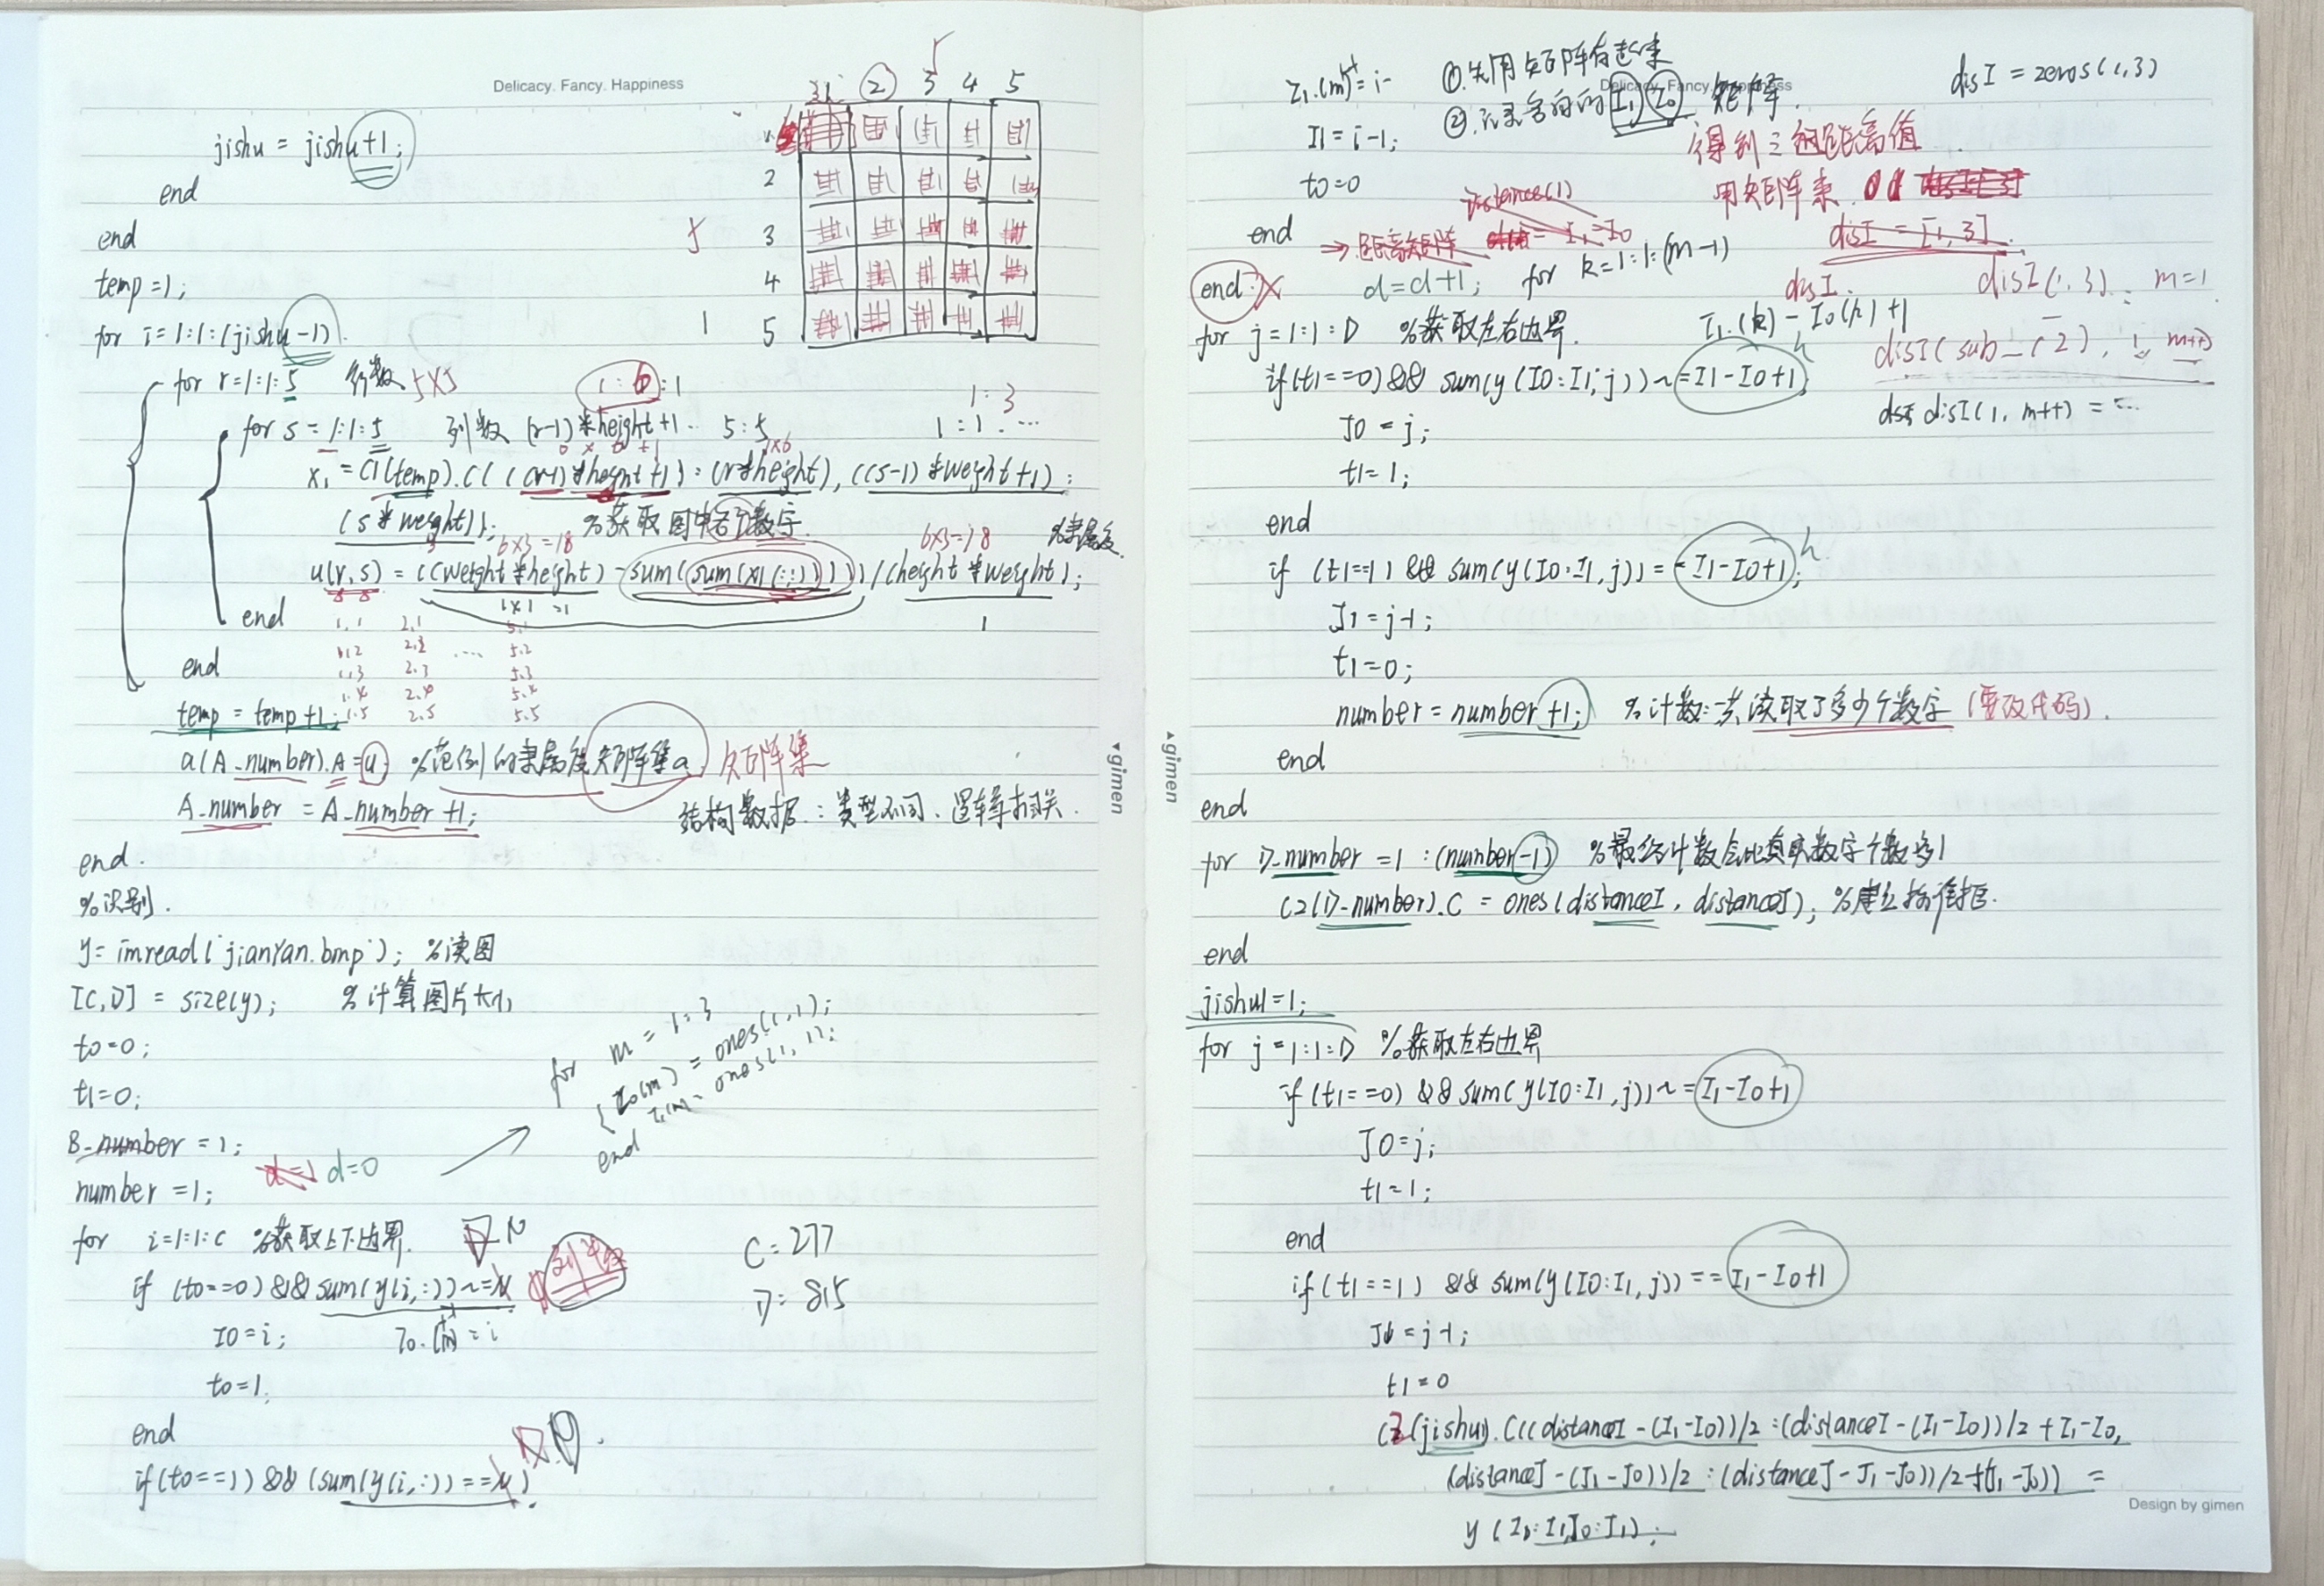 Delicacy. Fancy. Happiness
jishu = jishu+1;
end
end
temp=1;
for i=1:1:(jishu-1)
for r=1:1:5 行数 5X5
for s=1:1:5 列数 (r-1)*height+1 5:5
1:6:1
1:3
1:1....
0 x 6 +1
1x6
x1=C1(temp).C(((r-1)*height+1):(r*height),((s-1)*weight+1):
(s*weight)); %获取图中各个数字
3 6x3=18 6x3=18 %隶属度
u(r,s)=((weight*height)-sum(sum(x1(:,:))))/(height*weight);
5 5
1x1=1
1
end
1.1 2.1 5.1
1.2 2.2 .... 5.2
1.3 2.3 5.3
1.4 2.4 5.4
1.5 2.5 5.5
end
temp=temp+1;
a(A_number).A=u; %范例的隶属度矩阵集a 矩阵集
A_number = A_number+1; 结构数据:类型不同、逻辑相关.
end.
%识别.
y=imread('jianyan.bmp'); %读图
[C,D]=size(y); %计算图片大小
t0=0;
t1=0;
B_number=1;
d=1 d=0
number=1;
for m=1:3
{I0(m)=ones(1,1);
I1(m)=ones(1,1);
end
for i=1:1:C %获取上下边界.
D N
if (t0==0)&&sum(y(i,:))~= 列数
I0=i; I0.(m)=i
t0=1;
end
if(t0==1)&&(sum(y(i,:))== D
C=277
D=815
3 1 2 3 4 5
1
2
3
4
5
5
1
▾gimen
Delicacy. Fancy. Happiness
I1.(m)=i-
I1=i-1;
t0=0
end
①.先用矩阵存起来
②.记录各自的I1 I0 矩阵.
disI=zeros(1,3)
得到三组距离值
用矩阵来
disI=[1,3]
distance(1)
⇒距离矩阵 = I1-I0
end X d=d+1; for k=1:1:(m-1)
disI. disI(1,3) m=1
I1.(k)-I0(k)+1
disI(sub_(2), 1, m++)
disI(1,m++)=...
for j=1:1:D %获取左右边界.
if(t1==0)&&sum(y(I0:I1,j))~=I1-I0+1 h
J0=j;
t1=1;
end
if (t1==1) && sum(y(I0:I1,j))==I1-I0+1; h
J1=j-1;
t1=0;
number=number+1; %计数:共读取了多少个数字(要改代码).
end
end
for D_number=1:(number-1) %最终计数会比真实数字个数多1
C2(D_number).C=ones(distanceI,distanceJ); %建立标准框.
end
jishu1=1;
for j=1:1:D %获取左右边界
if(t1==0)&&sum(y(I0:I1,j))~=I1-I0+1
J0=j;
t1=1;
end
if(t1==1) && sum(y(I0:I1,j))==I1-I0+1
J1=j-1;
t1=0
C2(jishu1).C((distanceI-(I1-I0))/2:(distanceI-(I1-I0))/2+I1-I0,
(distanceJ-(J1-J0))/2:(distanceJ-J1-J0))/2+(J1-J0))=
y(I0:I1,J0:J1);
▴gimen
Design by gimen